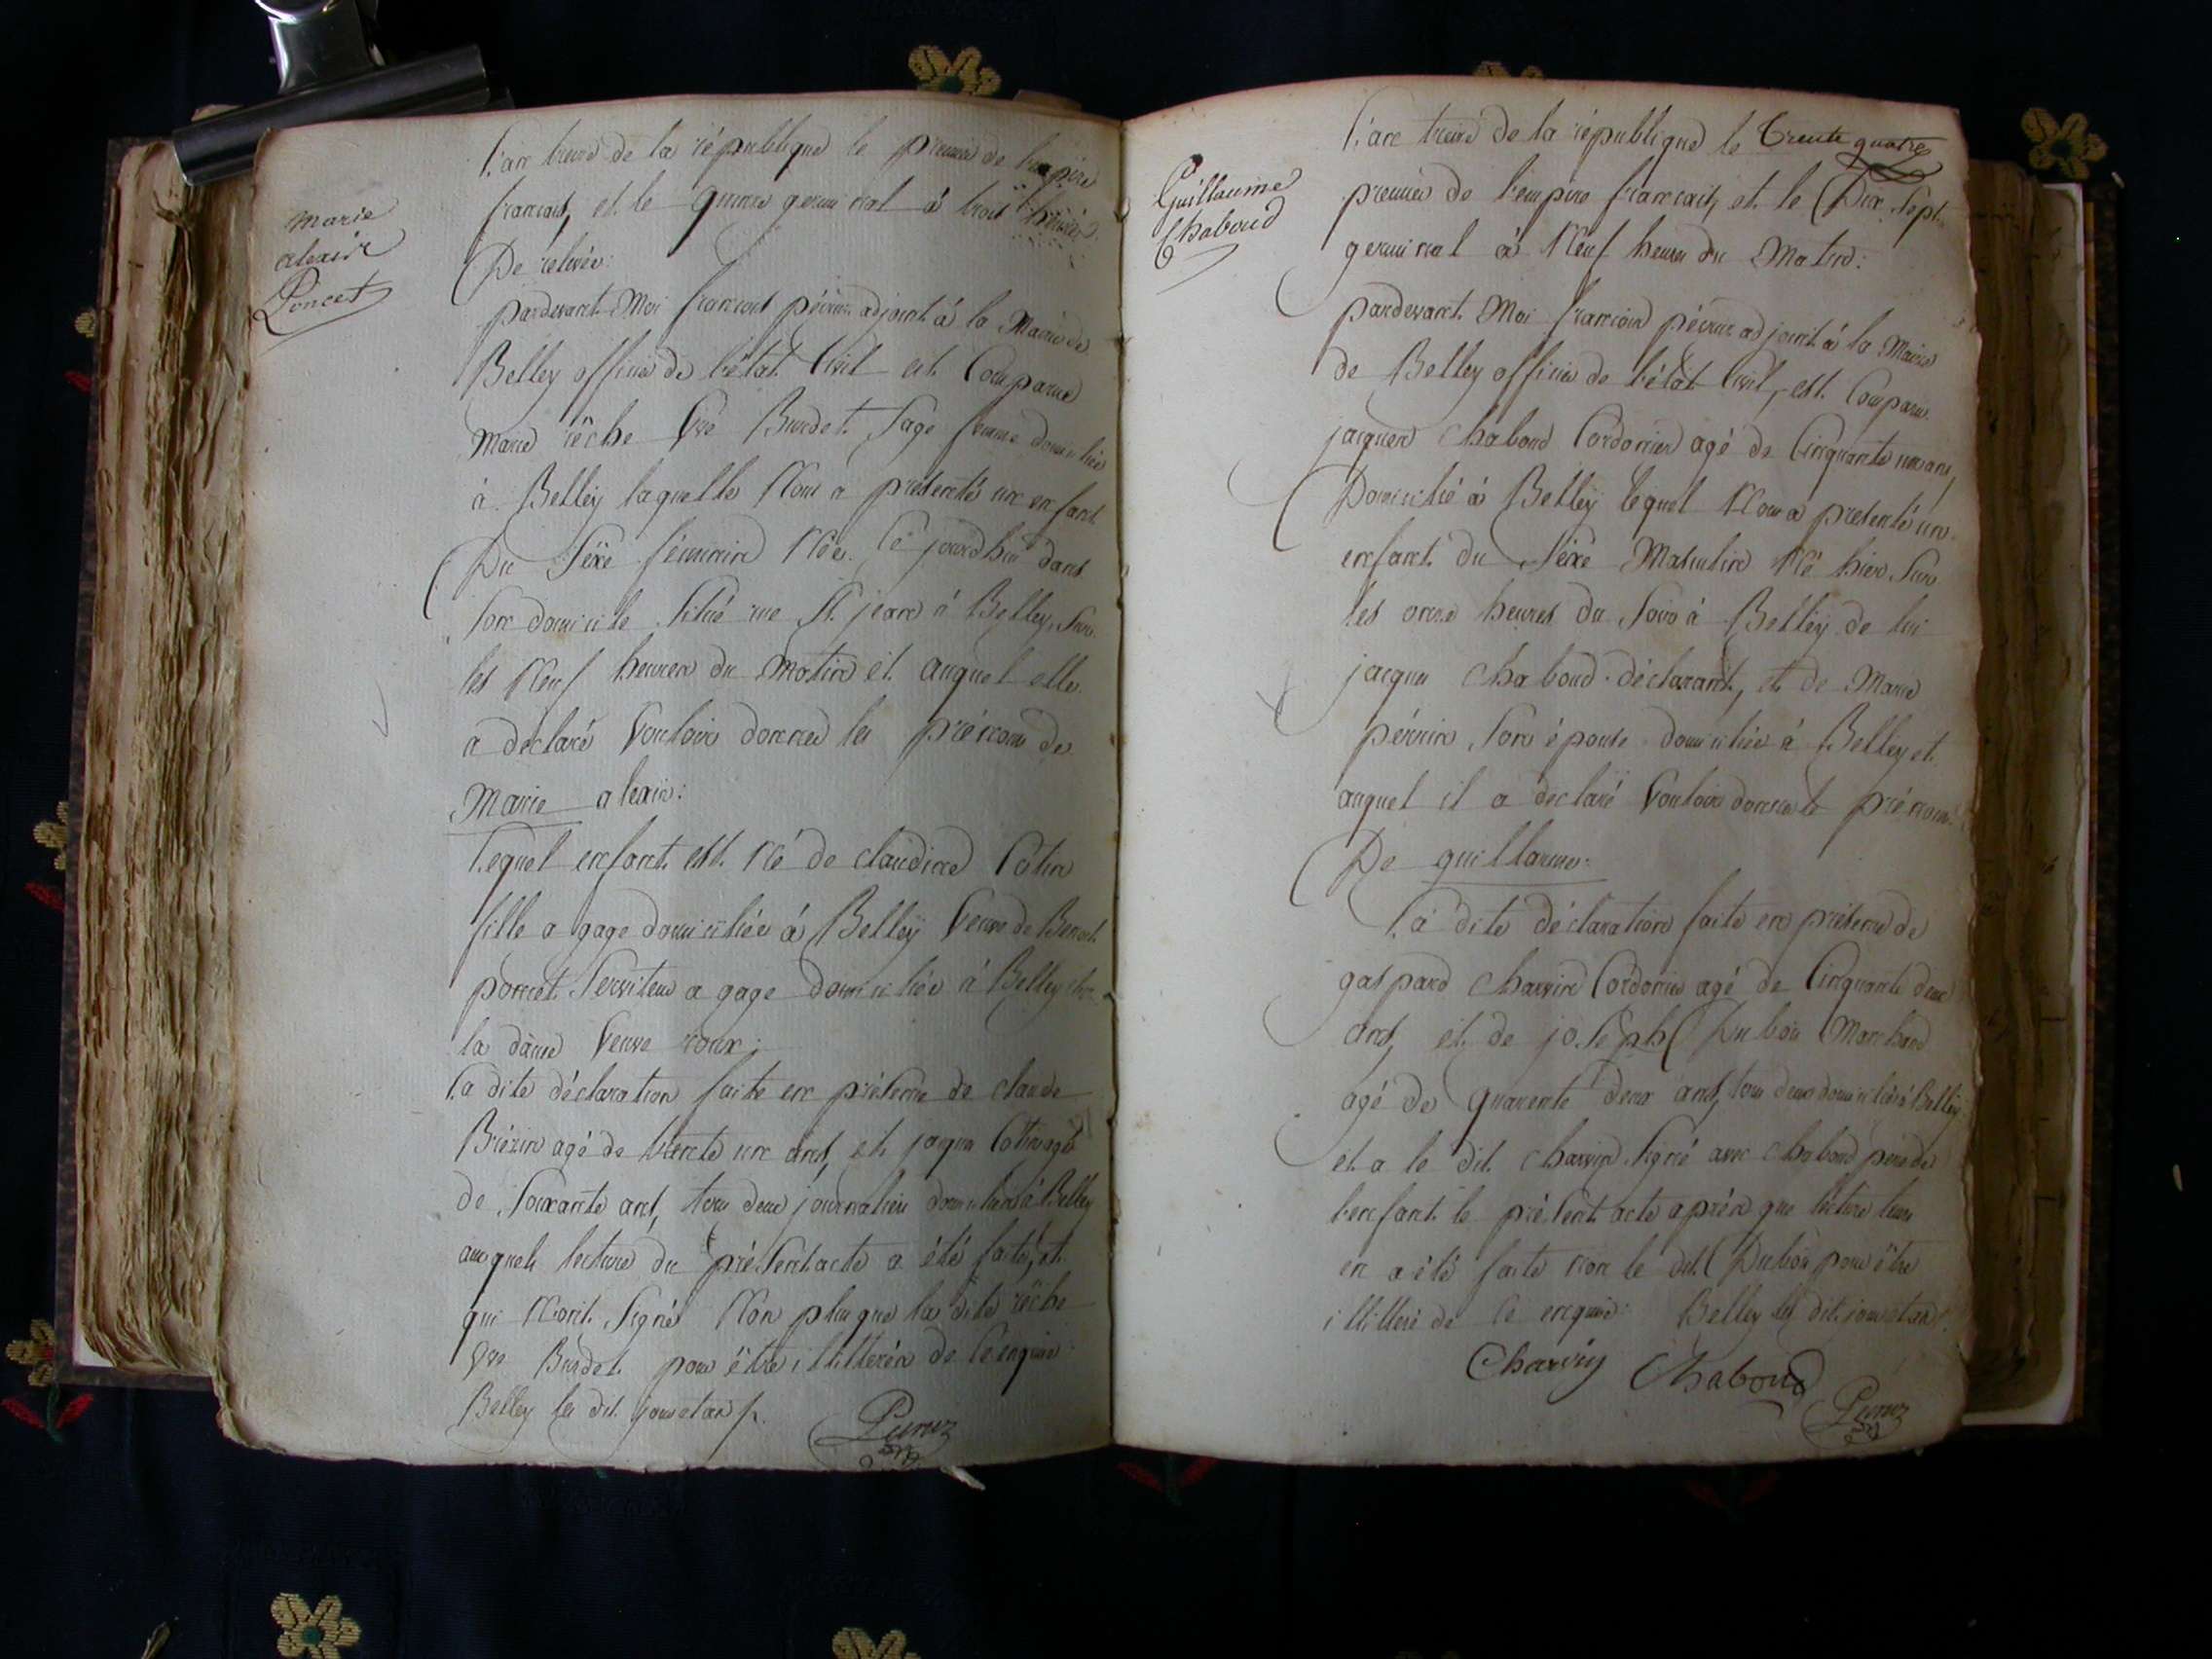 marie
alexis
Poncet
L'an treize de la république le premier de l'empire
francais, et le quinze germinal à trois heures
De relevée:
pardevant Moi francois péruz adjoint à la Mairie de
Belley officier de l'état Civil est Comparue
Marie rêche Vve Burdet Sage femme domiciliée
à Belley laquelle Nous a présenté un enfant
Du Séxe féminin Née Ce jourd'hui dans
Son domicile Situé rue St. jean à Belley, Sur
les Neuf heures du Matin et auquel elle
a déclaré Vouloir donner les prénoms de
Marie alexis:
Lequel enfant est Né de claudine Cotin
fille a gage domiciliée à Belley Veuve de Benoit
poncet Serviteur a gage domiciliée à Belley chez
la dâme Veuve roux;
La dite déclaration faite en présence de claude
Brézin agé de trente un ans, et jaque Cotin agé
de Soixante ans, tous deux journaliers domiciliés à Belley
auxquels lecture du présent acte a été faite, et
qui N'ont Signé Non plus que la dite rêche
Vve Burdet pour être illittérés de Ce enquis
Belley les dit jour et an
Peruz
Guillaume
Chaboud
L'an treize de la république le Trente quatre
premier de l'empire francais, et le Dix Sept
germinal à Neuf heures du Matin:
pardevant Moi francois péruz adjoint à la Mairie
de Belley officier de l'état Civil, est Comparu
jacques Chaboud Cordonier agé de Cinquante un ans,
Domicilié à Belley lequel Nous a présenté un
enfant du Séxe Masculin Né hier Sur
les onze heures du Soir à Belley de lui
jacques Chaboud déclarant, et de Marie
pérrin Son épouse domiciliée à Belley et
auquel il a déclaré Vouloir donner le prénom
De guillaume:
La dite déclaration faite en présence de
gaspard Charvin Cordonier agé de Cinquante deux
ans, et de joseph Dubois Marchand
agé de quarente deux ans, tous deux domiciliés à Belley
et a le dit Charvin Signé avec Chaboud père de
l'enfant le présent acte après que lecture leur
en a été faite non le dit Dubois pour être
illittéré de Ce enquis: Belley les dit jour et an
Charvin Chaboud
Peruz